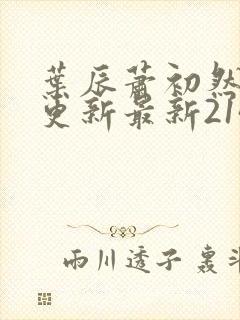 葉辰蕭初然
更新最新21
雨川透子 裏